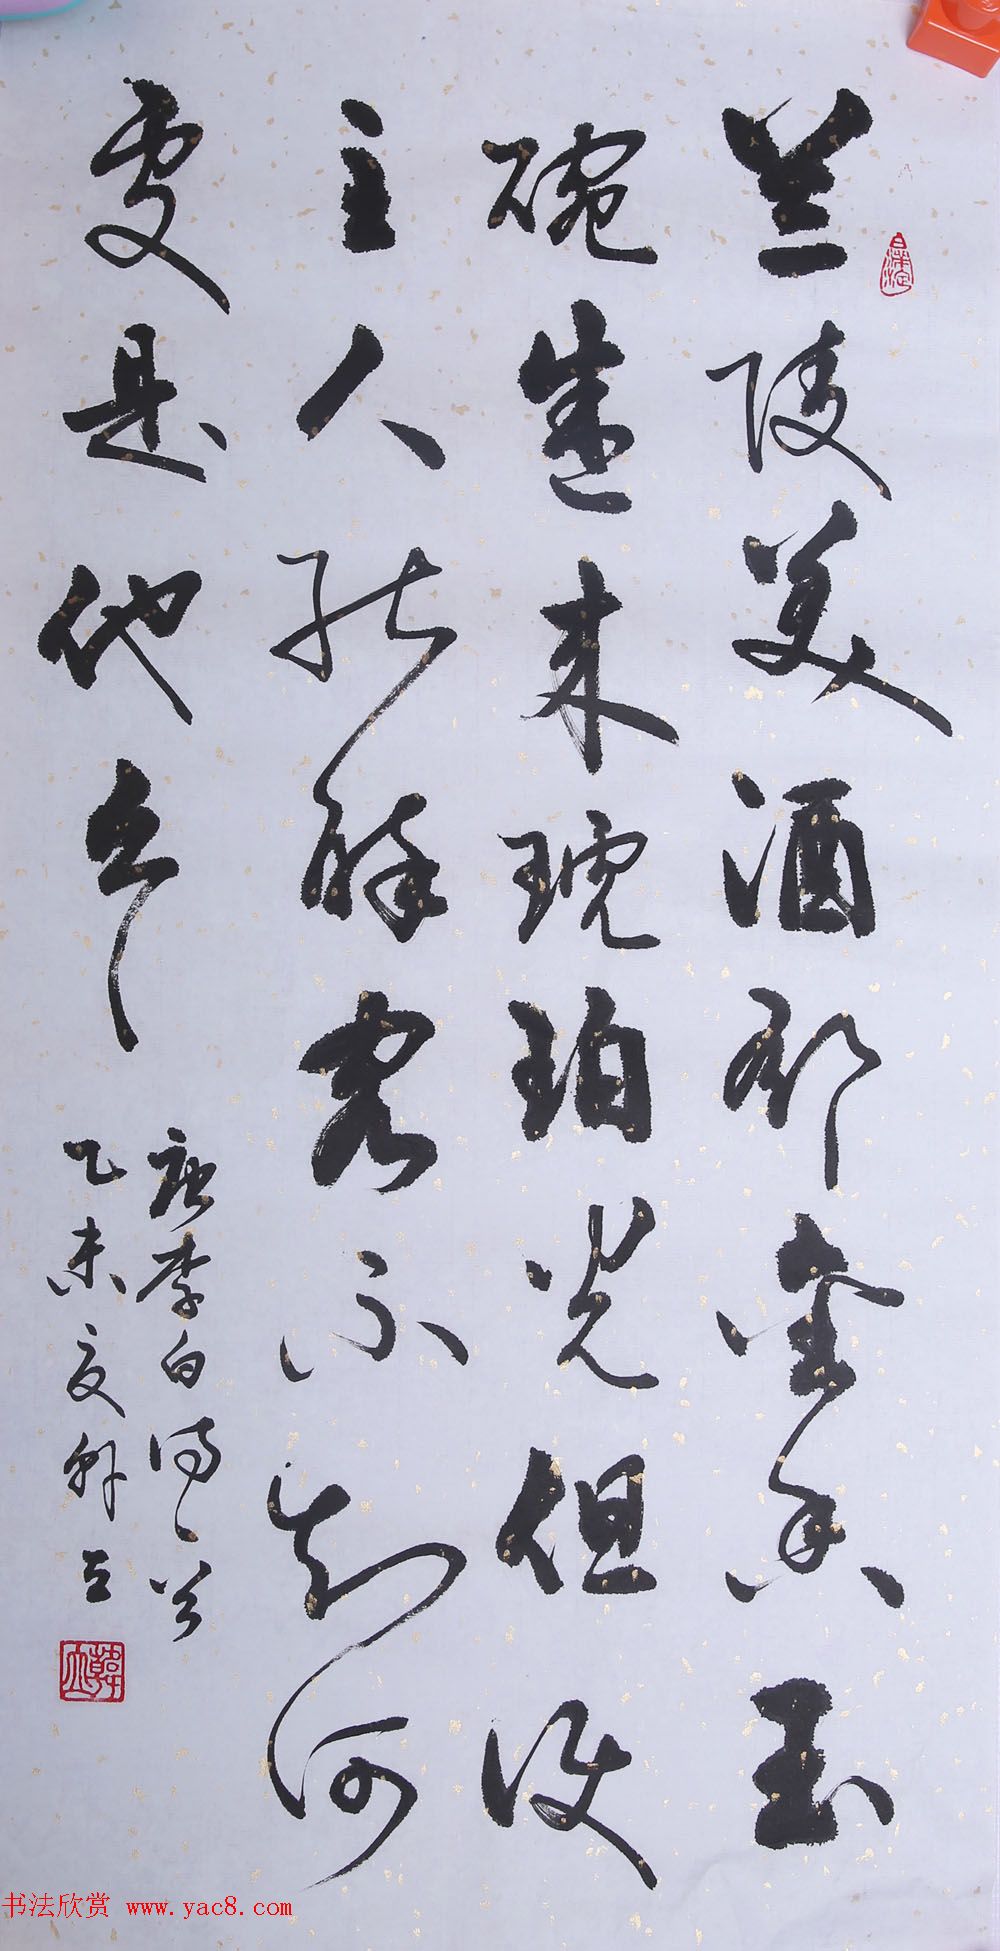 兰陵美酒郁金香玉
碗盛来琥珀光但使
主人能醉客不知何
處是他乡
唐李白诗一首
乙未夏
书法欣赏 www.yac8.com